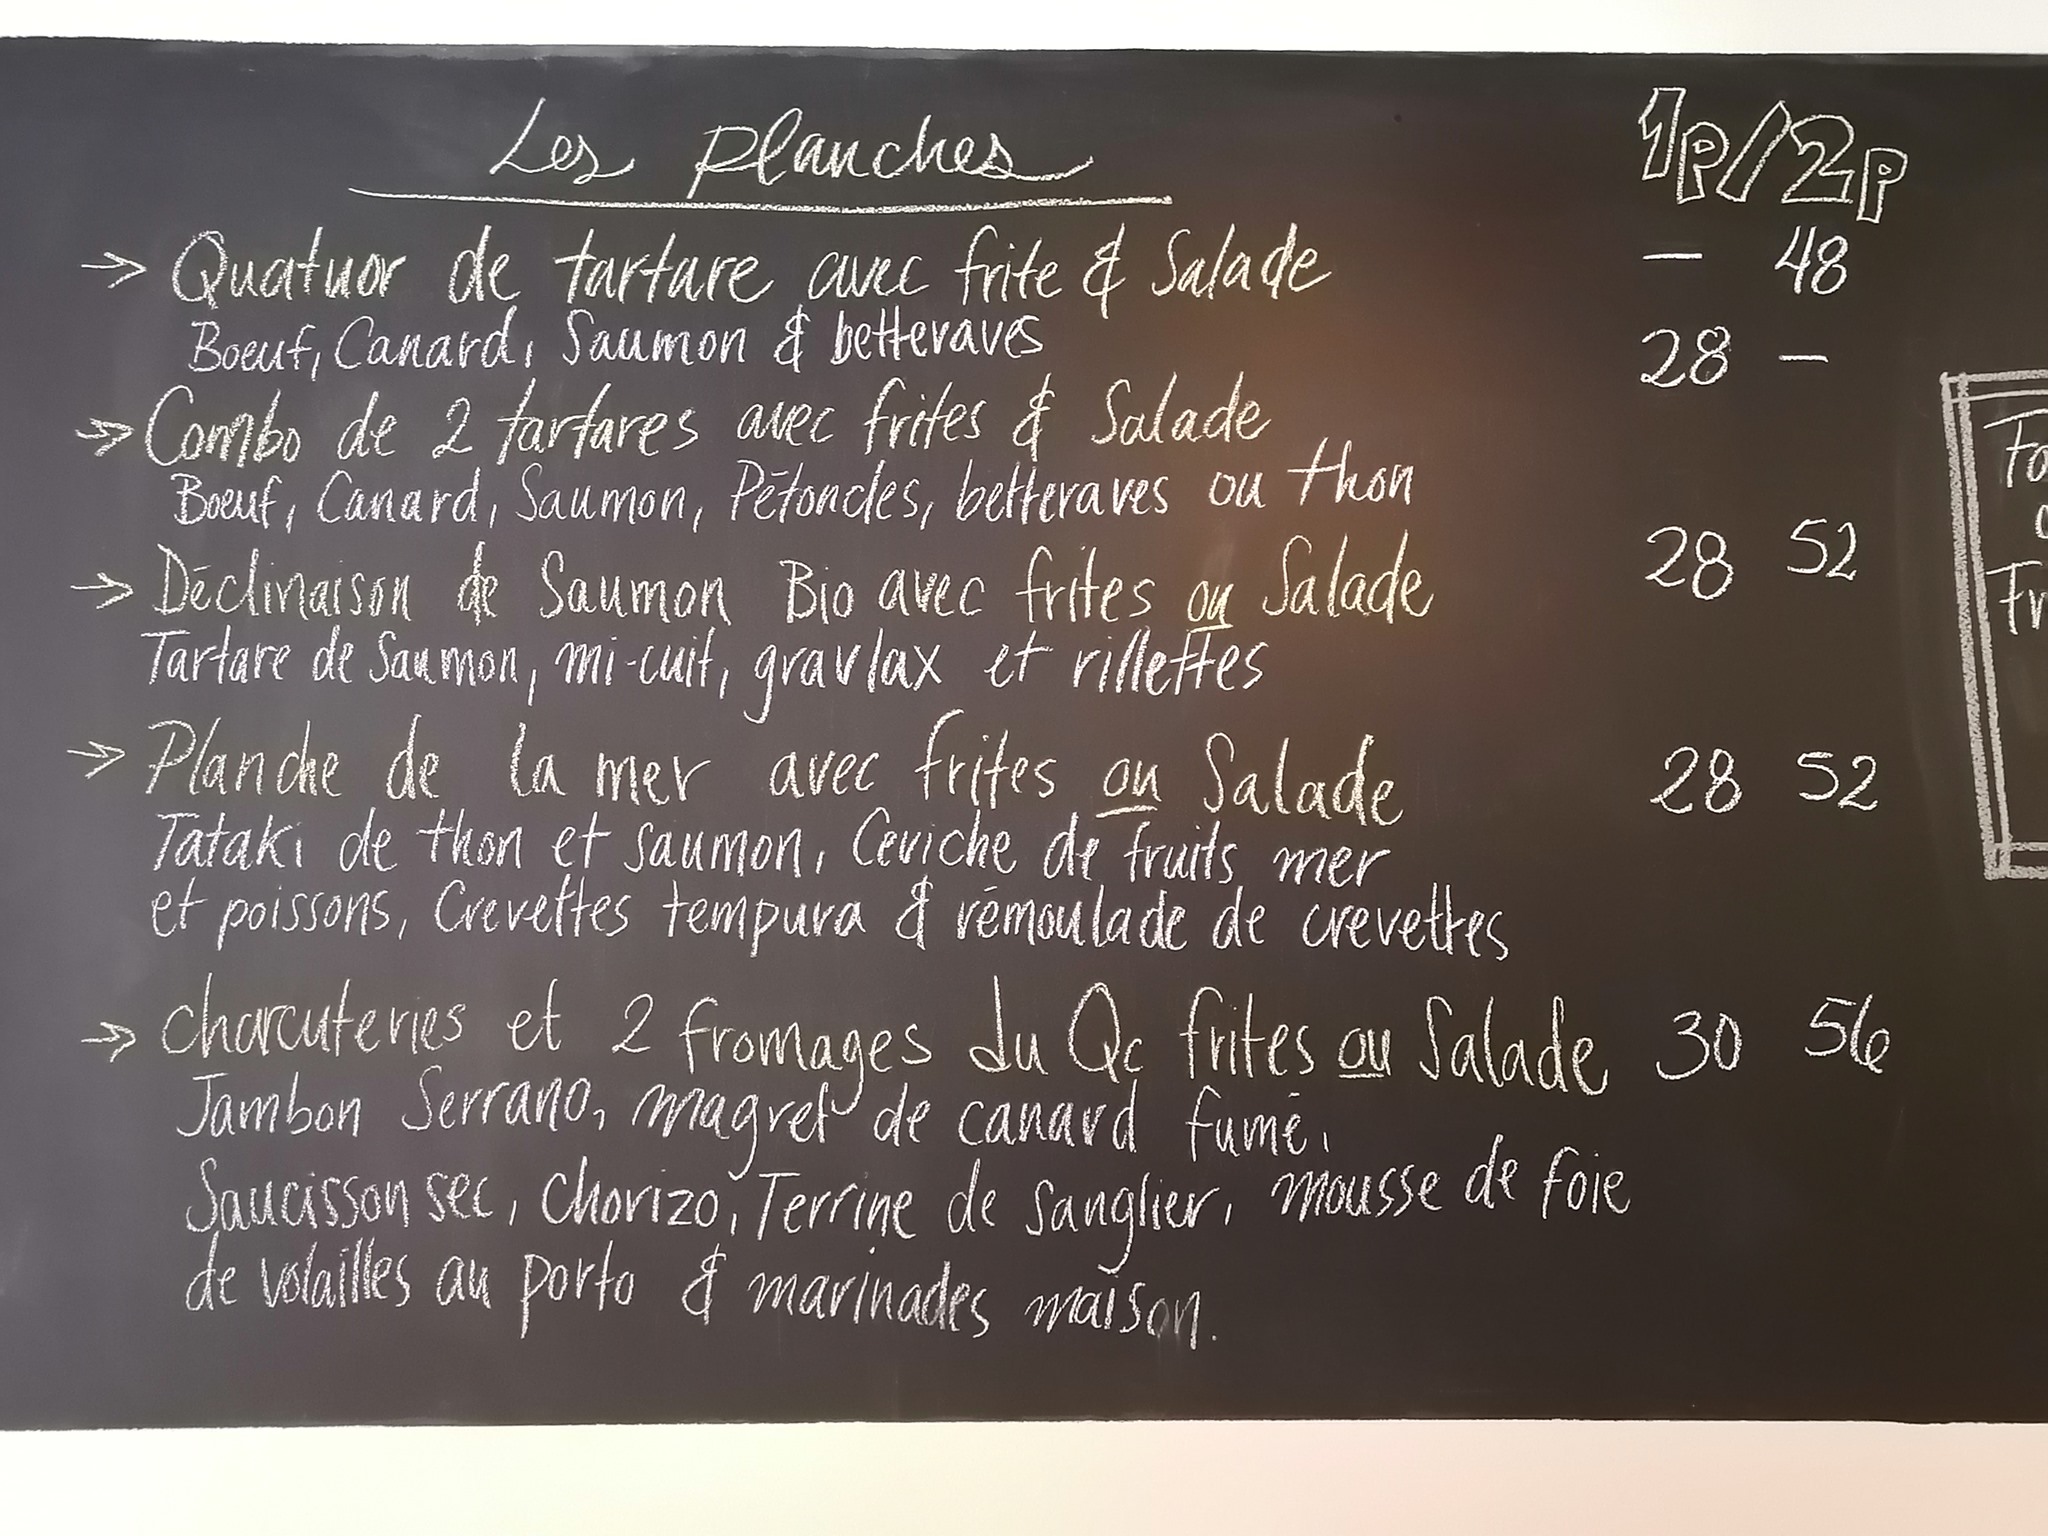 Les planches 1p/2p
→ Quatuor de tartare avec frite & Salade — 48
Boeuf, Canard, Saumon & betteraves 28 —
→ Combo de 2 tartares avec frites & Salade
Boeuf, Canard, Saumon, Pétoncles, betteraves ou thon
→ Déclinaison de Saumon Bio avec frites ou Salade 28 52
Tartare de Saumon, mi-cuit, gravlax et rillettes
→ Planche de la mer avec frites ou Salade 28 52
Tataki de thon et saumon, Ceviche de fruits mer
et poissons, Crevettes tempura & rémoulade de crevettes
→ Charcuteries et 2 fromages du Qc frites ou Salade 30 56
Jambon Serrano, magret de canard fumé,
Saucisson sec, Chorizo, Terrine de sanglier, mousse de foie
de volailles au porto & marinades maison.